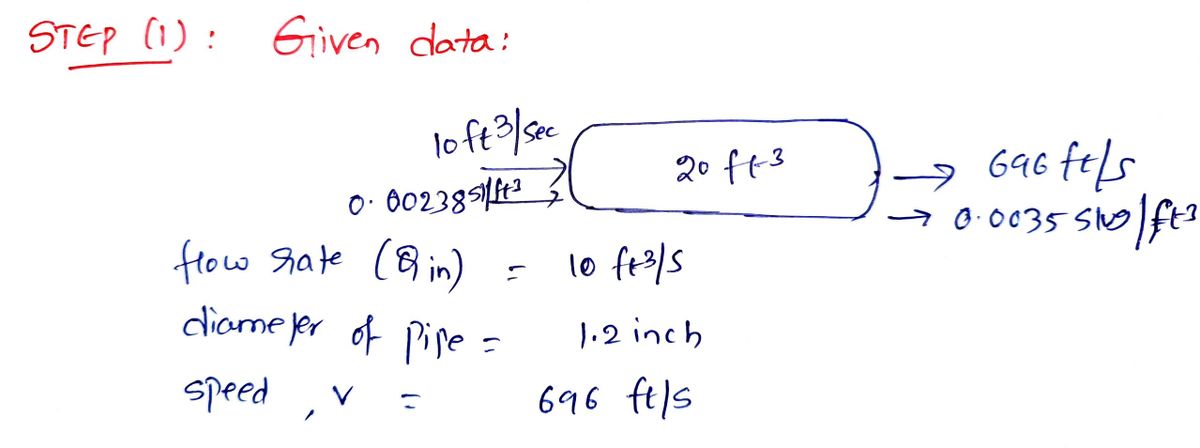 STEP (1) : Given data:
10ft3/sec
0.00238 sl/ft3
20 ft3
696 ft/s
0.0035 slug/ft3
flow rate (Qin) = 10 ft3/s
diameter of pipe = 1.2 inch
speed, v = 696 ft/s